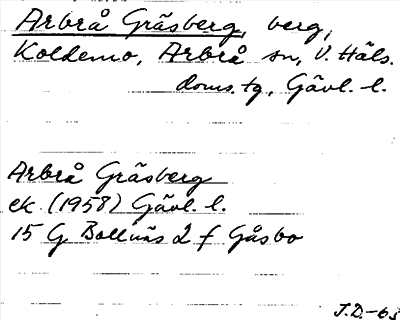 Arbrå Gräsberg, berg,
Koldemo, Arbrå sn, V. Häls.
doms.tg, Gävl. l.
Arbrå Gräsberg
ek (1958) Gävl. l.
15 G Bollnäs 2 f Gåsbo
J.D.-63